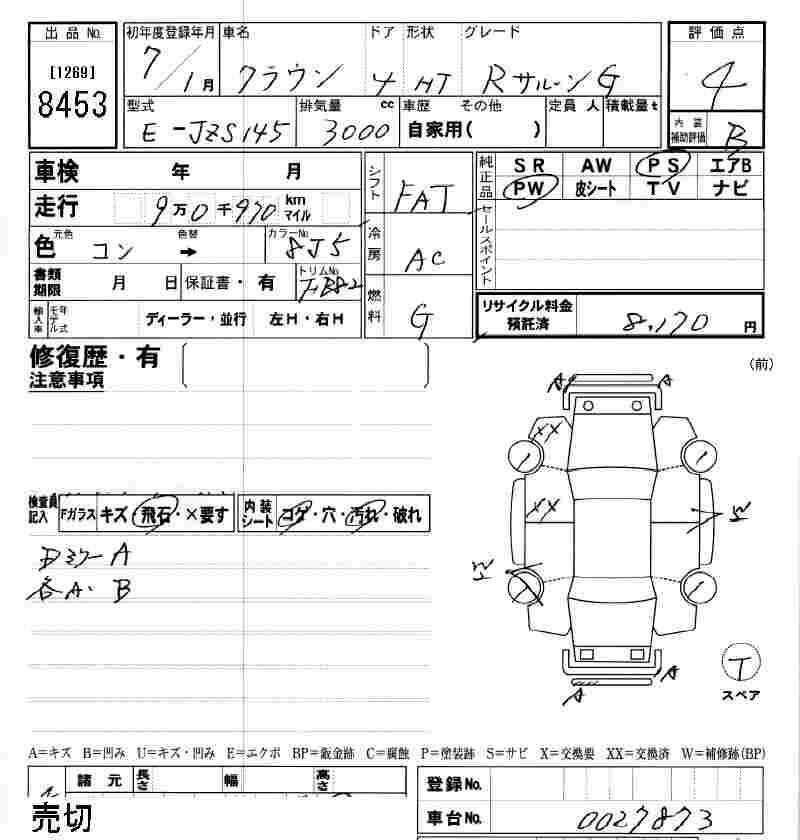 出品No.
[1269]
8453
初年度登録年月 車名 ドア 形状 グレード
7/1月 クラウン 4 HT RサルーンG
型式 排気量 cc 車歴 その他 定員 人 積載量t
E-JZS145 3000 自家用( )
評価点
4
内装補助評価 B
車検 年 月
走行 9万0千970 km マイル
色 元色 色替 カラーNo
コン → 8J5
書類期限 月 日 保証書・有 トリムNo FB82
輸入車 モデル年式 ディーラー・並行 左H・右H
シフト FAT
冷房 AC
燃料 G
純正品 SR AW PS エアB
PW 皮シート TV ナビ
セールスポイント
リサイクル料金預託済 8,170 円
修復歴・有
注意事項
(前)
検査員記入 Fガラス キズ・飛石・×要す 内装シート コゲ・穴・汚れ・破れ
Dミラー A
各A・B
A A
XX
XX
W
W
A A
T
スペア
A=キズ B=凹み U=キズ・凹み E=エクボ BP=鈑金跡 C=腐蝕 P=塗装跡 S=サビ X=交換要 XX=交換済 W=補修跡(BP)
諸元 長さ 幅 高さ
売切
登録No.
車台No. 0027873